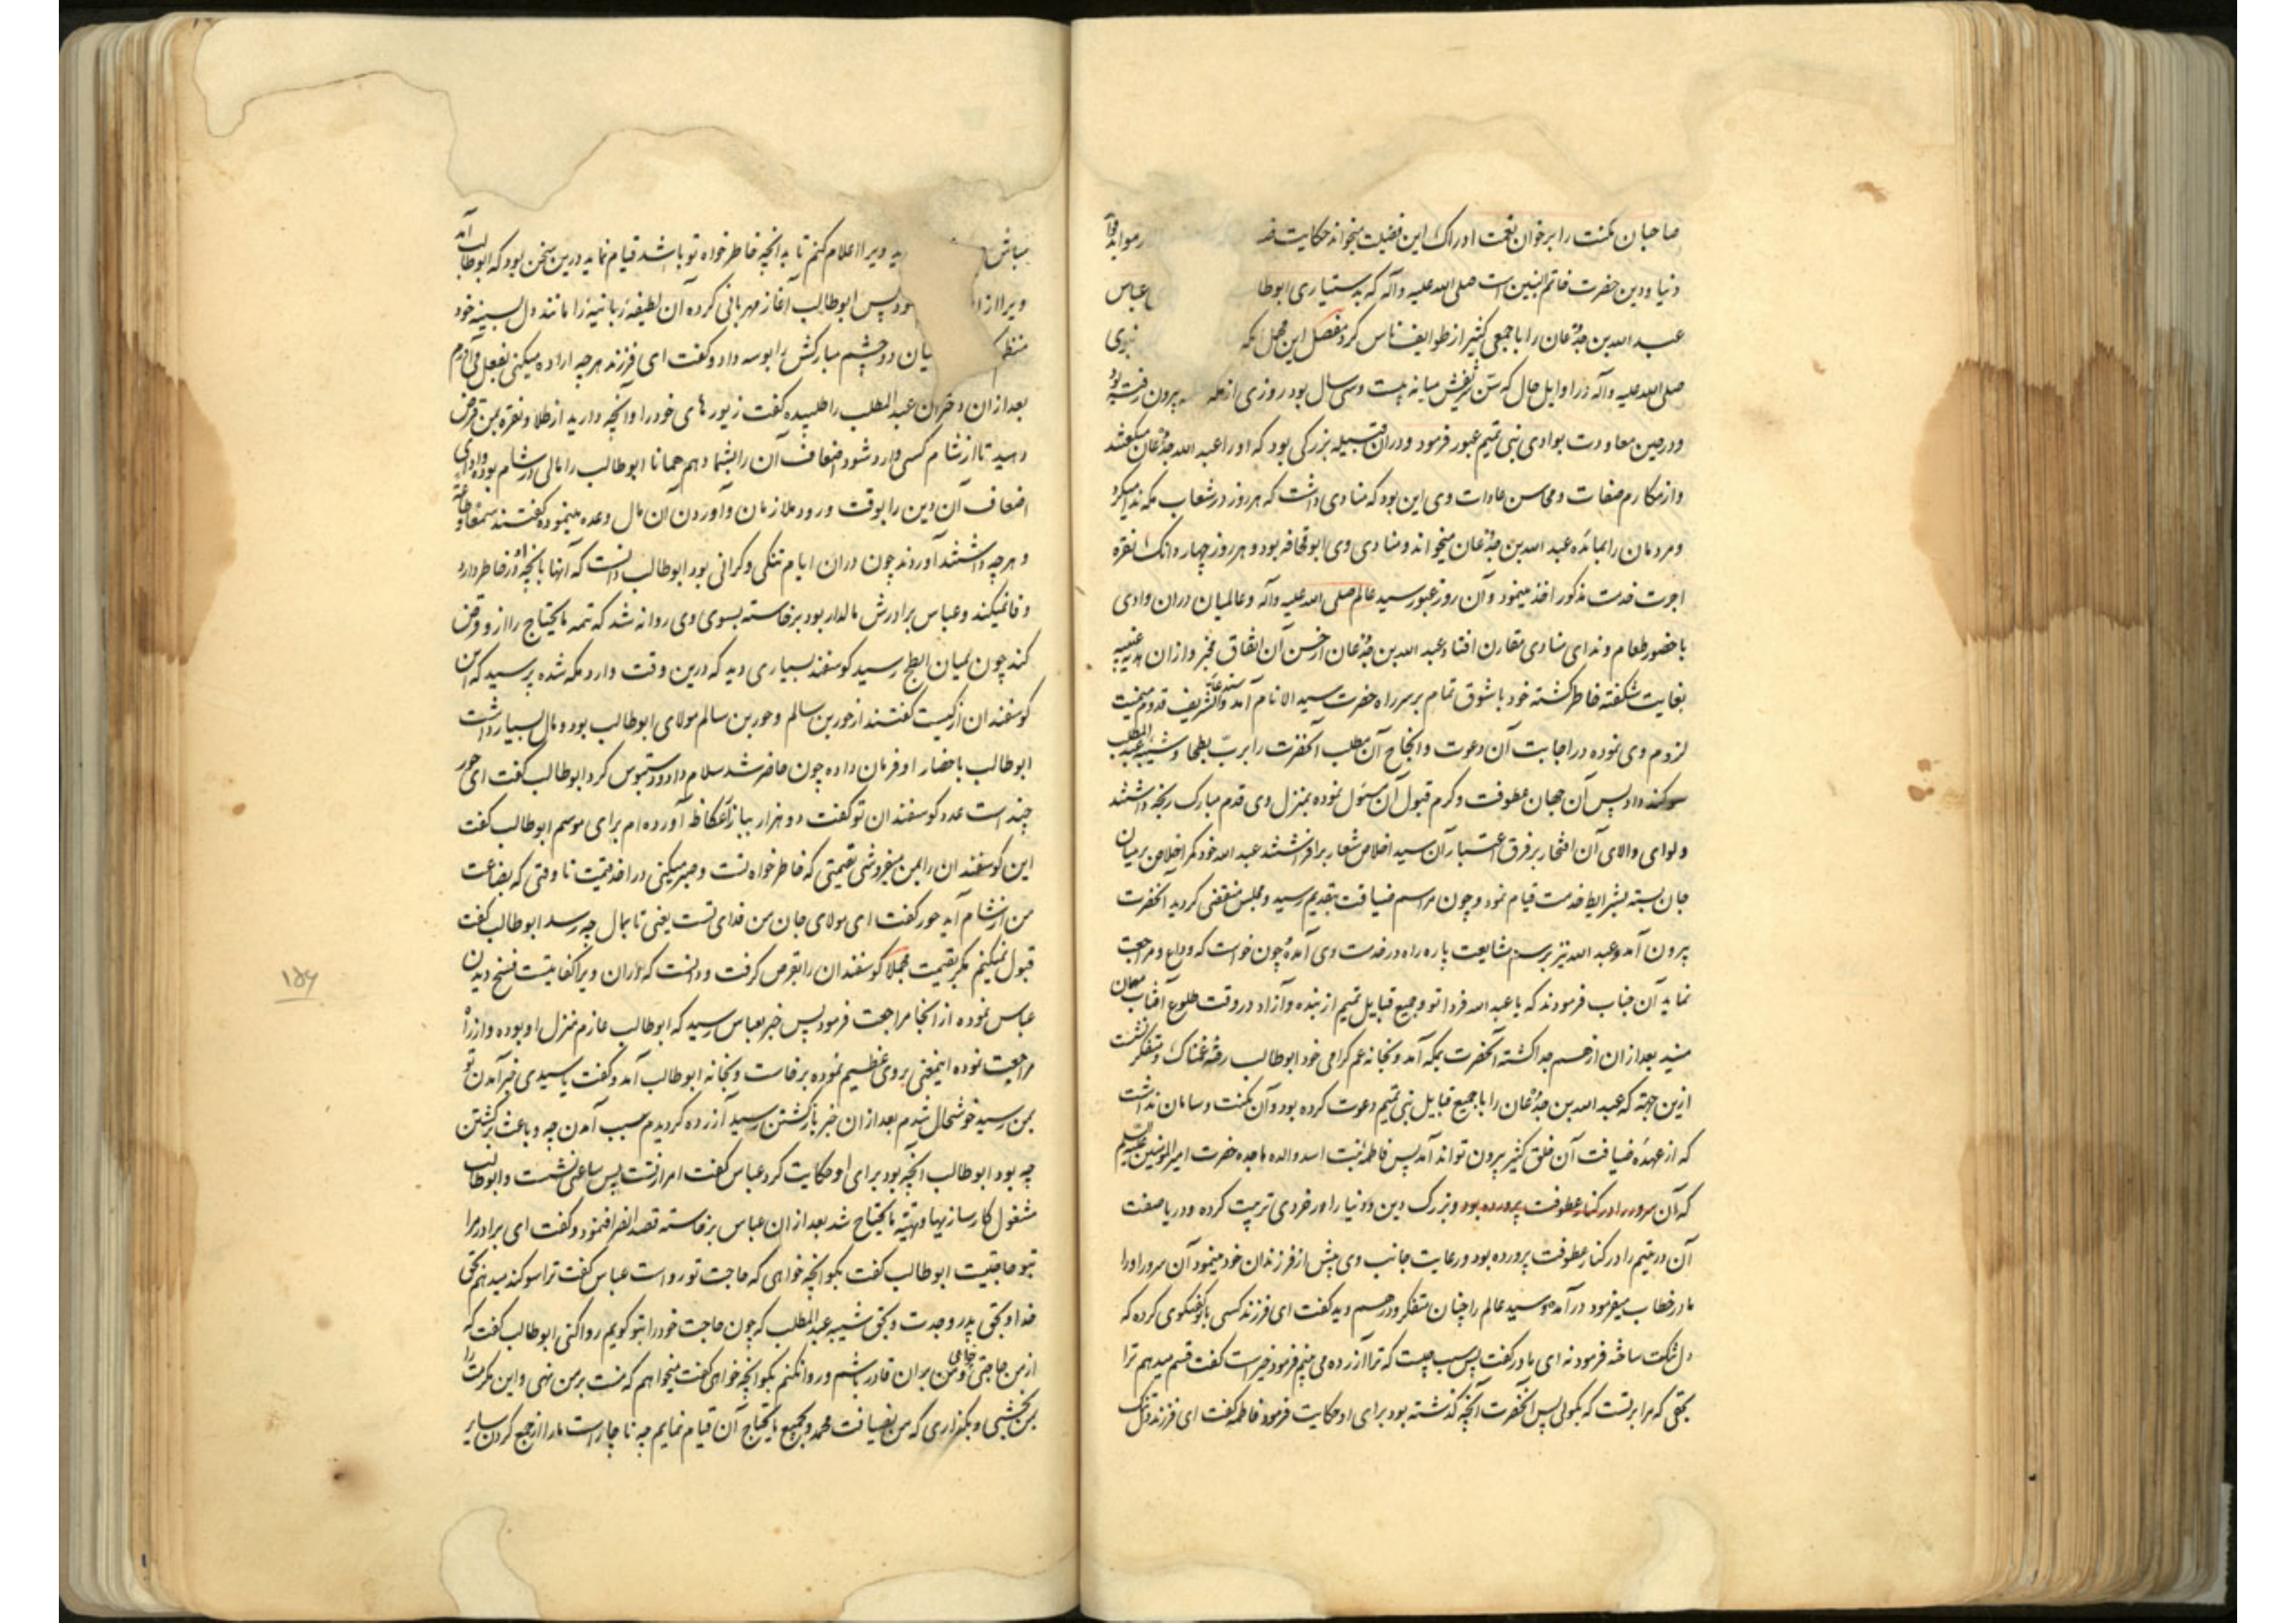 صاحبان مکنت را بر خوان نعمت ادراک این فضیلت میخواند حکایت
دنیا و دین حضرت خاتم النبیین است صلی الله علیه وآله که بدستیاری ابوطا عباس
عبد الله بن جذعان را با جمعی کثیر از طوایف ناس کرد مفصل این مجمل نبوی
صلی الله علیه وآله در اوایل حال که سن شریفش میانه بیست وسی سال بود روزی از مکه بیرون رفته بود
ودر حین معاودت بوادی بنی تمیم عبور فرمود ودران قبیله بزرگی بود که او را عبد الله جذعان میگفتند
واز مکارم صفات ومحاسن عادات وی این بود که منادی داشت که هر روز در شعاب مکه ندا میکرد
ومردمان را بمائده عبد الله بن جذعان میخواند ومنادی وی ابوقحافه بود وهر روز چهار دانک نقره
اجرت خدمت مذکور اخذ مینمود وآن روز عبور سید عالم صلی الله علیه وآله وعالمیان دران وادی
با حضور طعام وندای منادی مقارن افتاد وعبد الله بن جذعان از حسن آن اتفاق مخبر وازان
بغایت شکفته خاطر کشته خود با شوق تمام بر سر راه حضرت سید الانام آمد تشریف قدوم میمنت
لزوم وی نموده در اجابت آن دعوت وانجاح آن مطلب آنحضرت را برب بطحا وشیبه عبد المطلب
سوکند داد پس آن جهان عطوفت وکرم قبول آن مسئول نموده بمنزل وی قدم مبارک رنجه داشتند
ولوای والای آن افتخار بر فرق اعتبار آن سید اخلاص شعار برافراشتند عبد الله خود کمر اخلاص بر میان
جان بسته بشرایط خدمت قیام نمود وچون مراسم ضیافت بتقدیم رسید ومجلس منقضی کردید آنحضرت
بیرون آمد وعبد الله نیز برسم مشایعت پاره راه در خدمت وی آمده چون خواست که وداع ومراجعت
نماید آن جناب فرمودند که یا عبد الله فردا تو وجمیع قبایل تمیم از بنده وآزاد در وقت طلوع آفتاب مهمان
منید بعد ازان از هم جدا کشته آنحضرت بمکه آمد وبخانه عم کرامی خود ابوطالب رفته غمناک ومتفکر نشست
ازین جهة که عبد الله بن جذعان را با جمیع قبایل بنی تمیم دعوت کرده بود وآن مکنت وسامان نداشت
که از عهده ضیافت آن خلق کثیر بیرون تواند آمد پس فاطمه بنت اسد والده ماجده حضرت امیر المؤمنین علیه السلام
که آن سرور را در کنار عطوفت پرورده بود وبزرک دین ودنیا را در خردی تربیت کرده ودریا صفت
آن در یتیم را در کنار عطوفت پرورده بود ورعایت جانب وی بیش از فرزندان خود مینمود آن سرور او را
مادر خطاب میفرمود درآمد وسید عالم را چنان متفکر ودرهم دید کفت ای فرزند کسی با تو کفتکوی کرده که
دل تنکت ساخته فرمود نه ای مادر کفت پس سبب چیست که ترا آزرده می بینم فرمود خیر است کفت قسم میدهم ترا
بحقی که مرا بر تست که بکوئی پس آنحضرت آنچه گذشته بود برای او حکایت فرمود فاطمه کفت ای فرزند دلتنک
مباش ویرا اعلام کنم تا بدانچه خاطر خواه تو باشد قیام نماید درین سخن بود که ابوطالب آمد
ویرا ازا ود پس ابوطالب آغاز مهربانی کرده آن لطیفه ربانیه را مانند دل بسینه خود
منظم یان دو چشم مبارکش را بوسه داد وکفت ای فرزند هر چه اراده میکنی بفعل می آورم
بعد ازان دختران عبد المطلب را طلبیده کفت زیورهای خود را وآنچه دارید از طلا ونقره بمن قرض
دهید تا از شام کسی وارد شود اضعاف آن را بشما دهم همانا ابوطالب را مالی در شام بوده وادای
اضعاف آن دین را بوقت ورود ملازمان وآوردن آن مال وعده مینموده کفتند سمعا وطاعة
وهر چه داشتند آوردند چون دران ایام تنکی وکرانی بود ابوطالب دانست که آنها بانچه او در خاطر دارد
وفا نمیکند وعباس برادرش مالدار بود برخاسته بسوی وی روانه شد که تتمه مایحتاج را از او قرض
کند چون بمیان ابطح رسید کوسفند بسیاری دید که درین وقت وارد مکه شده پرسید که این
کوسفندان از کیست کفتند از حور بن سالم وحور بن سالم مولای ابوطالب بود ومال بسیار داشت
ابوطالب باحضار او فرمان داده چون حاضر شد سلام داد ودستبوس کرد ابوطالب کفت ای حور
چند است عدد کوسفندان تو کفت دو هزار ببازار عکاظ آورده ام برای موسم ابوطالب کفت
این کوسفندان را بمن میفروشی بقیمتی که خاطر خواه تست وصبر میکنی در اخذ قیمت تا وقتی که بضاعت
من از شام آید حور کفت ای مولای جان من فدای تست یعنی تا بمال چه رسد ابوطالب کفت
قبول نمیکنم مکر بقیمت مجملا کوسفندان را بقرض کرفت ودانست که دران ویرا کفایتست فسخ دیدن
عباس نموده از آنجا مراجعت فرمود پس خبر بعباس رسید که ابوطالب عازم منزل او بوده واز راه
مراجعت نموده اینمعنی بر وی عظیم نموده برخاست وبخانه ابوطالب آمد وکفت یا سیدی خبر آمدن تو
بمن رسید خوشحال شدم بعد ازان خبر بازکشتن رسید آزرده کردیدم سبب آمدن چه وباعث برکشتن
چه بود ابوطالب آنچه بود برای او حکایت کرد عباس کفت امر از تست پس ساعتی نشست وابوطالب
مشغول کارسازیها وتهیه مایحتاج شد بعد ازان عباس برخاسته قصد انصراف نمود وکفت ای برادر مرا
بتو حاجتیست ابوطالب کفت بکو آنچه خواهی که حاجت تو رواست عباس کفت ترا سوکند میدهم بحق
خدا وبحق پدر وجدت وبحق شیبه عبد المطلب که چون حاجت خود را بتو کویم روا کنی ابوطالب کفت که
از من حاجتی خواهی ومن بران قادر باشم وروا نکنم بکو آنچه خواهی کفت میخواهم که منت بر من نهی واین مکرمت را
بمن بخشی وبکذاری که من بضیافت محمد وجمیع مایحتاج آن قیام نمایم چه ناچار است ما را از جمع کردن سایر
۱۵۶